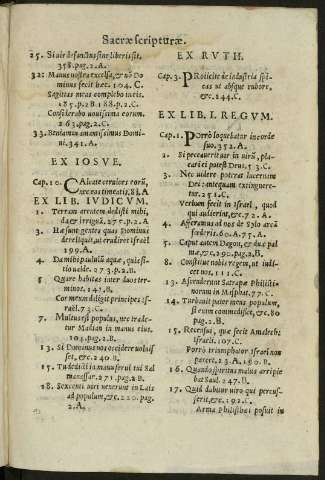 Sacræ scripturæ.
25. Si air defunctus sine liberis sit.
358. pag. 2. A.
32: Manus nostra excelsa, & nõ Do
minus fecit hæc. 104. C.
Sagittas meas complebo in eis.
185. p. 2 B 188. p. 2. C.
Considerabo novissima eorum.
263. pag. 2. C.
33. Beniamin amantissimus Domi
ni. 341. A.
EX IOSVE.
Cap. 10. Calcate cervices eorũ,
ne timeatis, 81. A
EX LIB. IVDICVM.
1. Terram arentem dedisti mihi,
da & irriguã, 275. p. 2. A
3. Hæ sunt gentes quas Dominus
dereliquit, ut erudiret Israël
199. A.
4. Da mihi paululũ aquæ, quia si-
tio valde. 273. p. 2. B.
5. Quare habitas inter duos ter-
minos. 142. B.
Cor meum diligit principes Is-
raël. 73. C.
7. Multus est populus, nec trade-
tur Madian in manus eius.
103. pag. 2. B.
13. Si Dominus nos occidere voluis
set, &c. 240. B.
15. Tu dedisti in manu servi tui Sal
271. pag. 2. B.
18. Sexcenti viri venerunt in Lais
ad populum, &c. 220. pag.
2. A.
EX RVTH.
Cap. 3. PRoiicite de industria spi-
cas ut absque rubore,
&c. 244. C.
EX LIB. I. REGVM.
Cap. 1. Porrò loquebatur in corde
suo. 352. A.
2. Si peccaverit vir in virũ, placa-
ri ei potest Deus, 13. C.
3. Nec videre poterat lucernam
Dei antequam extinguere-
tur. 251. C.
Verbum fecit in Israël, quod
qui audierint, &c. 72. A.
4. Afferamus ad nos de Sylo arcã
fœderis. 60. A. 75. A.
5. Caput autem Dagon, & duæ pal
mæ, &c. 290. pag. 2. B.
8. Constitue nobis regem, ut iudi-
cet nos, 111. C.
13. Ascenderunt Satrapæ Philisthi
norum in Masphat. 77. C.
14. Turbavit pater meus populum,
si eum commedisset, &c. 80
pag. 2. B.
15. Recensui, quæ fecit Amalech
Israeli. 107. C.
Porrò triumphator Israël non
parcet. 23. A. 180. B.
16. Quando spiritus malus arripie
bat Saul. 247. B.
17. Quid dabitur viro qui percus-
serit, &c. 192. C.
Arma Philisthæi posuit in